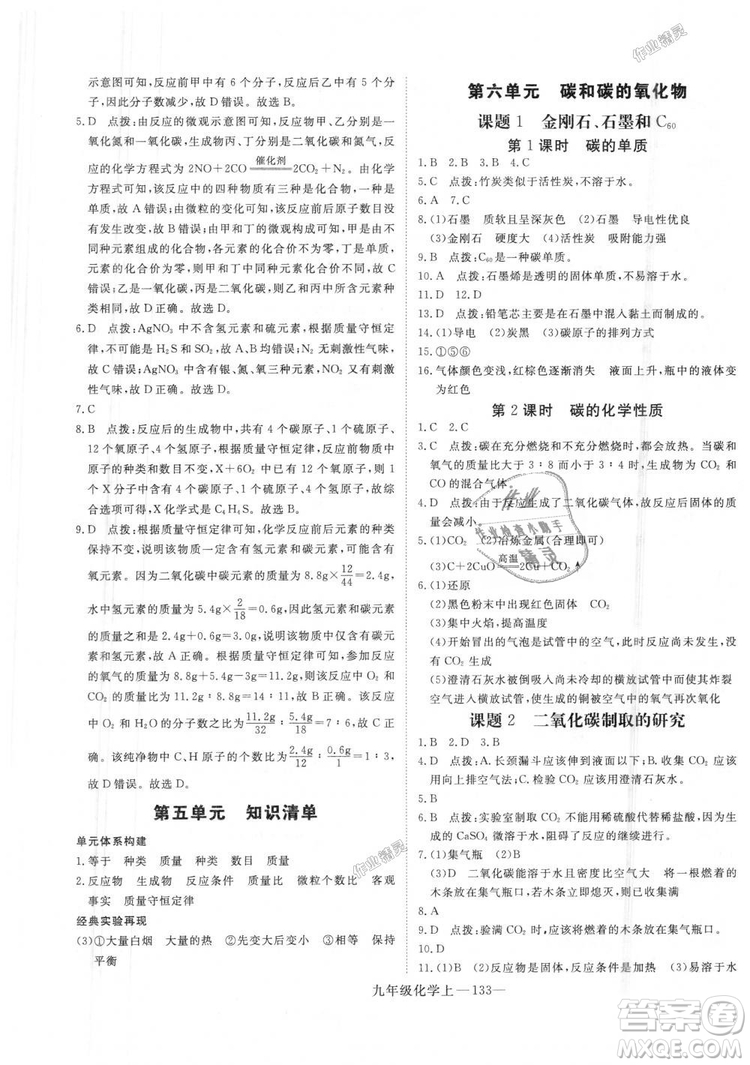 示意图可知，反应前甲中有 6 个分子，反应后有 5 个分子，
因此分子数减少，故 D 错误。故选 B。
5. D 点拨：由反应的微观模拟图可知，甲、乙分别是一
氧化氮和一氧化碳，生成物丙、丁是二氧化碳和氮气，反
应的化学方程式为 2NO+2CO 催化剂 2CO₂+N₂。由化学方
程式可知，该反应中的四种物质中三种是化合物，一种
是单质，故 A 错误；由微粒的变化可知，甲中原子数目没
有发生改变，故 B 错误；由甲和丁的微观构成可知，甲是
不同元素组成的化合物，各元素的化合价不是零，丁是单
质，元素的化合价为零，则甲和丁中同种元素化合价不相
等，故 C 错误；乙是一氧化碳，丙是二氧化碳，都属于氧
化物，故 D 正确。故选 D。
6. D 点拨：AgNO₃ 中不含氢元素和硫元素，根据质量守恒定
律，不可能是 H₂S 和 SO₂，故 A、B 错误；无刺激性气味，
故 C 错误；AgNO₃ 中含有银、氮、氧三种元素，根据质量
守恒定律，产物可能是 Ag、N₂、O₂，N₂、O₂ 无刺激性
气味，故 D 正确。故选 D。
7. C
8. B 点拨：反应后的生成物中，共有 6 个碳原子、1 个硫原子、
12 个氧原子、6 个氢原子，根据质量守恒定律，在化学反
应中，反应前后原子的种类没有改变，数目没有增减，
题中的反应可表示为，X+6O₂═══生成物，6O₂ 中含有
12 个氧原子，根据质量守恒定律，X 的化学式中含有 6 个
碳原子、6 个氢原子、1 个硫原子，故 X 化学式为 C₆H₆S。故
选项 B 符合题意。
9. D 点拨：根据质量守恒定律可知，反应物和生成物的元
素种类保持不变，故该纯净物一定含有氢元素和碳元素，
可能含有氧元素。因为二氧化碳中碳元素的质量 8.8g×12/44=2.4g，
水中氢元素的质量 5.4g×2/18=0.6g，所以碳、氢元素
的质量之和是 2.4g+0.6g=3.0g，说明该物质只有碳、
氢元素组成，不含氧元素，故 A、B 错误；由题意，参加反应
的氧气的质量为 8.8g+5.4g-3.0g=11.2g，则参加反
应的 O₂ 和 H₂O 的分子个数比为 11.2g/32：5.4g/18=7：6，
故 C 正确；该纯净物中 C、H 原子的个数比为 2.4g/12：0.6g/1=1：3，
故 D 错误。故选 D。
第五单元 知识清单
单元体系构建
1. 等于 种类 质量 种类 数目 质量
2. 反应物 生成物 反应条件 质量 微粒个数比 客观
事实 质量守恒定律
经典实验再现
(3)①大量白烟 大量的热 ②先变大后变小 ③相等 保持
平衡
第六单元 碳和碳的氧化物
课题 1 金刚石、石墨和C₆₀
第 1 课时 碳的单质
1. B 2. B 3. B 4. C
5. C 点拨：竹炭类似于活性炭，不溶于水。
6. A 7. C
8. (1)石墨 质软且呈深灰色 (2)石墨 导电性优良
(3)金刚石 硬度大 (4)活性炭 吸附能力强
9. B 点拨：C₆₀ 是一种碳单质。
10. A 点拨：石墨烯是透明的固体单质，不溶于水。
11. D 12. D
13. C 点拨：铅笔芯主要是在石墨中混入黏土而成的。
14. (1)导电 (2)炭黑 (3)碳原子的排列方式
15. ①⑤⑥
16. 气体颜色变浅，红棕色逐渐消失 液面上升，瓶中液体
变为红色
第 2 课时 碳的化学性质
1. C 2. C
3. C 点拨：碳在充分燃烧和不充分燃烧时，参加反应的碳和
氧气的质量比介于 3：8 而小于 3：4，则生成物为 CO₂ 和
CO 的混合气体。
4. D 点拨：反应后，生成了二氧化碳气体，故固体质量
会减小。
5. (1)CO₂ (2)冶炼金属(合理即可)
(3)C+2CuO 高温 2Cu+CO₂↑
6. (1)还原
(2)黑色粉末中出现红色固体 CO₂
(3)集中火焰，提高温度
(4)开始冒出的气泡是试管中的空气，此时反应尚未生
成 CO₂
(5)澄清石灰水会沿导管进入尚未冷却的横放试管中炸裂
空气进入试管使生成的铜被空气中的氧气再次氧化
课题 2 二氧化碳制取的研究
1. B 2. D 3. B
4. D 点拨：A. 长颈漏斗应该伸到液面以下；B. 收集 CO₂
时，导管应该伸入集气瓶底；C. 检验 CO₂ 应该用澄清石灰水。
5. B
6. C 点拨：实验室制取 CO₂ 不能用稀硫酸代替稀盐酸，因为生
成的 CaSO₄ 微溶于水，阻碍了反应的继续进行。
7. (1)集气瓶 (2)B
(3)D 二氧化碳能溶于水且密度比空气大 将一根燃着的
木条放在集气瓶口，若木条立即熄灭，则已集满
8. A
9. D 点拨：验满应将燃着的木条放在集气瓶口。
10. C
11. D
九年级化学上—133—
作业精灵
作业精灵
作业
作业检查小助手
精灵
答案圈
MXQE.COM